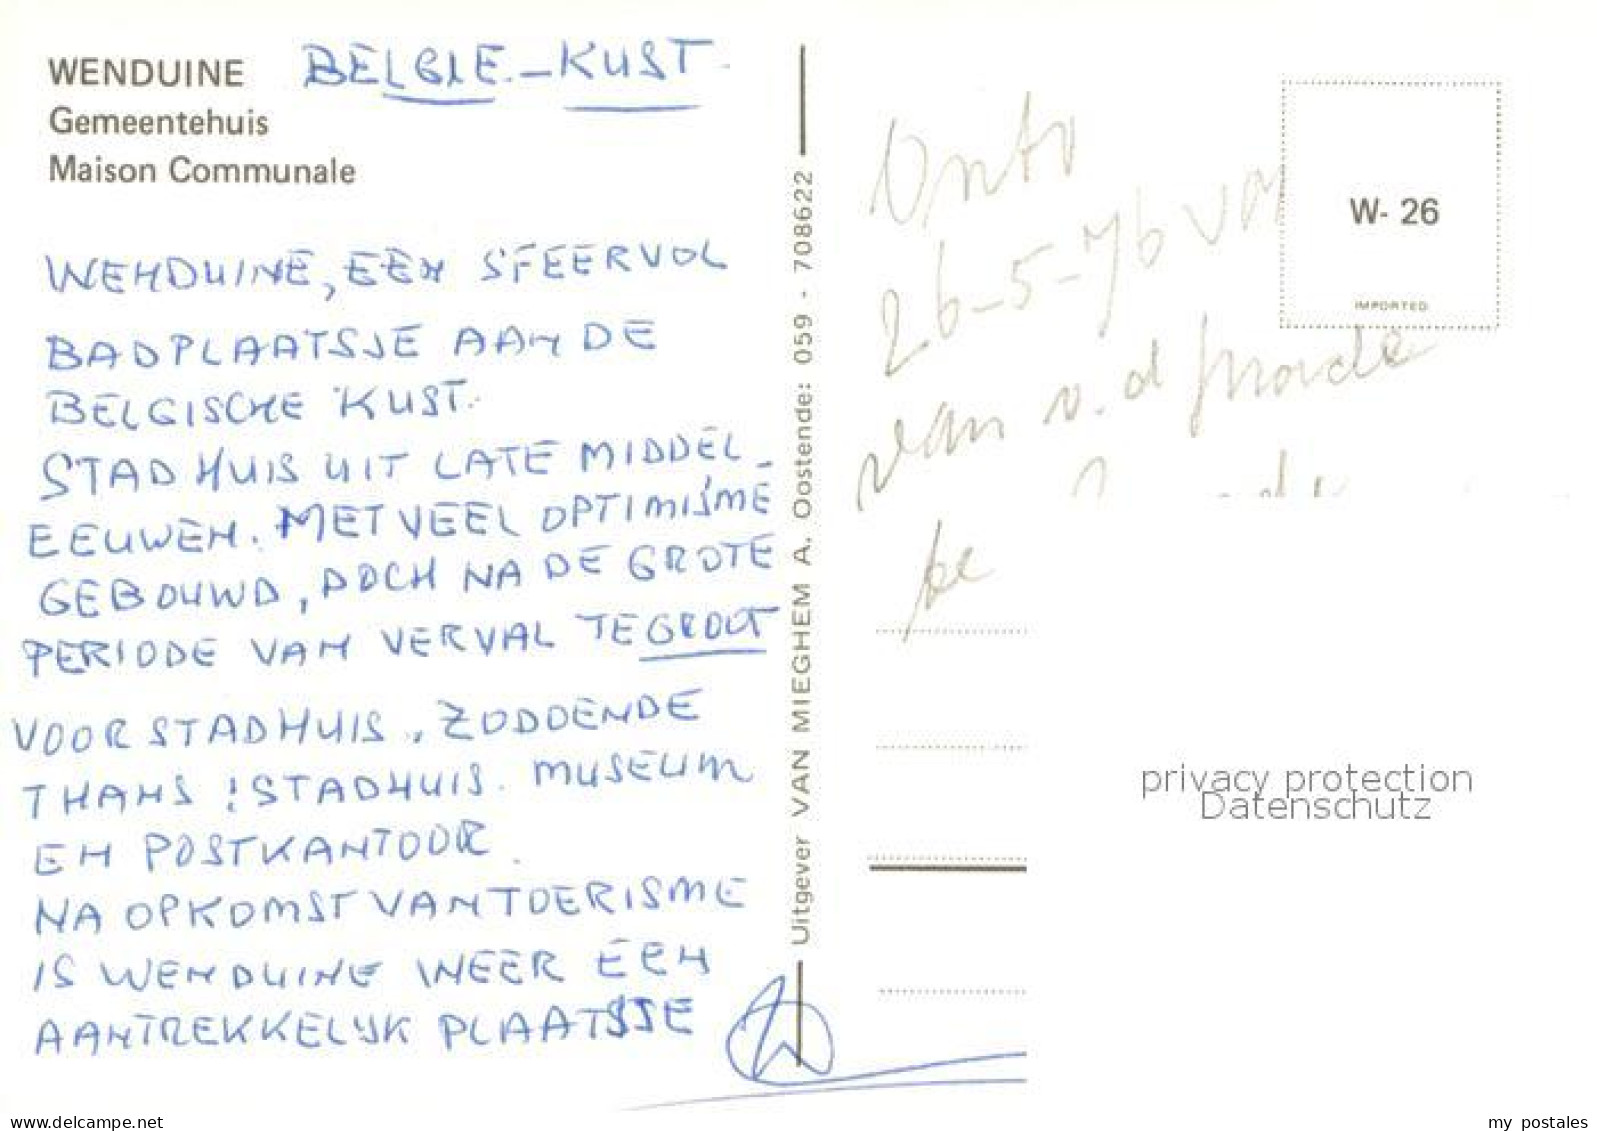 WENDUINE BELGIE - KUST
Gemeentehuis
Maison Communale
WENDUINE, EEN SFEERVOL
BADPLAATSJE AAN DE
BELGISCHE KUST.
STADHUIS UIT LATE MIDDEL-
EEUWEN. MET VEEL OPTIMISME
GEBOUWD, DOCH NA DE GROTE
PERIODE VAN VERVAL TE GROOT
VOOR STADHUIS, ZODOENDE
THANS : STADHUIS. MUSEUM
EN POSTKANTOOR.
NA OPKOMST VAN TOERISME
IS WENDUINE WEER EEN
AANTREKKELIJK PLAATSJE
Uitgever VAN MIEGHEM A. Oostende: 059 - 708622
W- 26
IMPORTED
Ontv
26-5-76 van
van v.d
privacy protection
Datenschutz
www.delcampe.net
my_postales